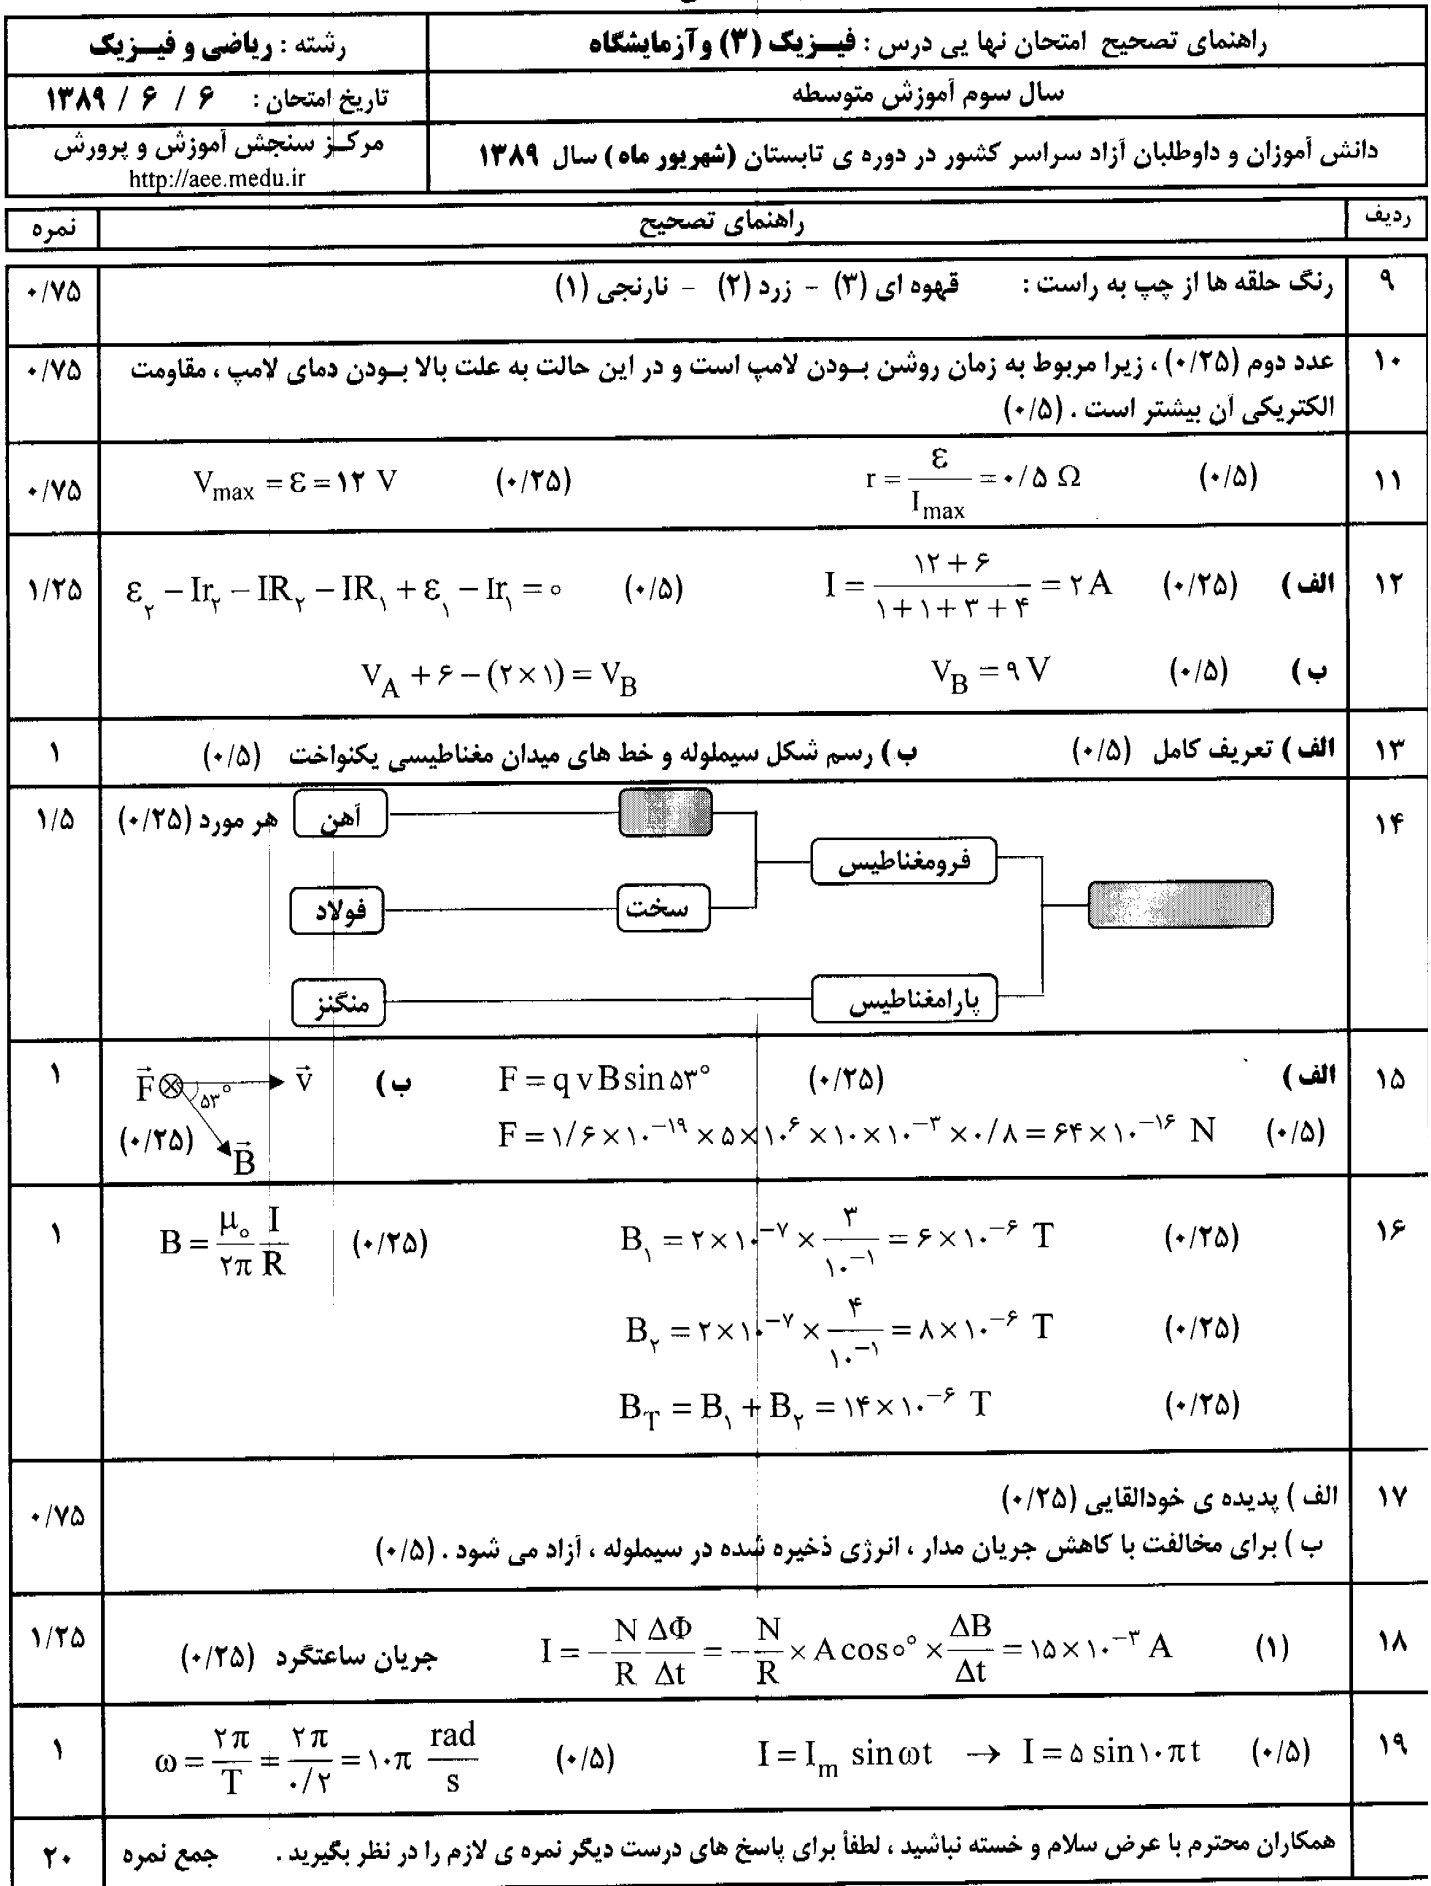 راهنمای تصحیح امتحان نها یی درس : فیـزیک (۳) وآزمایشگاه
رشته : ریاضی و فیـزیک
سال سوم آموزش متوسطه
تاریخ امتحان : ۶ / ۶ / ۱۳۸۹
دانش آموزان و داوطلبان آزاد سراسر کشور در دوره ی تابستان (شهریور ماه) سال ۱۳۸۹
مرکـز سنجش آموزش و پرورش
http://aee.medu.ir
ردیف راهنمای تصحیح نمره
۹ رنگ حلقه ها از چپ به راست : قهوه ای (۳) - زرد (۲) - نارنجی (۱) ۰/۷۵
۱۰ عدد دوم (۰/۲۵) ، زیرا مربوط به زمان روشن بـودن لامپ است و در این حالت به علت بالا بـودن دمای لامپ ، مقاومت ۰/۷۵
الکتریکی آن بیشتر است . (۰/۵)
۱۱ r = ε / I_max = ۰/۵ Ω (۰/۵) V_max = ε = ۱۲ V (۰/۲۵) ۰/۷۵
۱۲ الف ) I = (۱۲ + ۶) / (۱ + ۱ + ۳ + ۴) = ۲ A (۰/۲۵) ε_۲ − Ir_۲ − IR_۲ − IR_۱ + ε_۱ − Ir_۱ = ۰ (۰/۵) ۱/۲۵
ب ) V_B = ۹ V (۰/۵) V_A + ۶ − (۲ × ۱) = V_B
۱۳ الف ) تعریف کامل (۰/۵) ب ) رسم شکل سیملوله و خط های میدان مغناطیسی یکنواخت (۰/۵) ۱
۱۴ آهن هر مورد (۰/۲۵) ۱/۵
فرومغناطیس
سخت فولاد
پارامغناطیس منگنز
۱۵ الف ) F = q v B sin ۵۳° (۰/۲۵) ب ) F⃗ ⊗ ۵۳° v⃗ ۱
F = ۱/۶ × ۱۰^−۱۹ × ۵ × ۱۰^۶ × ۱۰ × ۱۰^−۳ × ۰/۸ = ۶۴ × ۱۰^−۱۶ N (۰/۵) B⃗ (۰/۲۵)
۱۶ B = μ_۰/۲π I/R (۰/۲۵) B_۱ = ۲ × ۱۰^−۷ × ۳/۱۰^−۱ = ۶ × ۱۰^−۶ T (۰/۲۵) ۱
B_۲ = ۲ × ۱۰^−۷ × ۴/۱۰^−۱ = ۸ × ۱۰^−۶ T (۰/۲۵)
B_T = B_۱ + B_۲ = ۱۴ × ۱۰^−۶ T (۰/۲۵)
۱۷ الف ) پدیده ی خودالقایی (۰/۲۵) ۰/۷۵
ب ) برای مخالفت با کاهش جریان مدار ، انرژی ذخیره شده در سیملوله ، آزاد می شود . (۰/۵)
۱۸ I = −N/R ΔΦ/Δt = −N/R × A cos ۰° × ΔB/Δt = ۱۵ × ۱۰^−۳ A (۱) جریان ساعتگرد (۰/۲۵) ۱/۲۵
۱۹ ω = ۲π/T = ۲π/۰/۲ = ۱۰π rad/s (۰/۵) I = I_m sin ωt → I = ۵ sin ۱۰πt (۰/۵) ۱
همکاران محترم با عرض سلام و خسته نباشید ، لطفاً برای پاسخ های درست دیگر نمره ی لازم را در نظر بگیرید . جمع نمره ۲۰